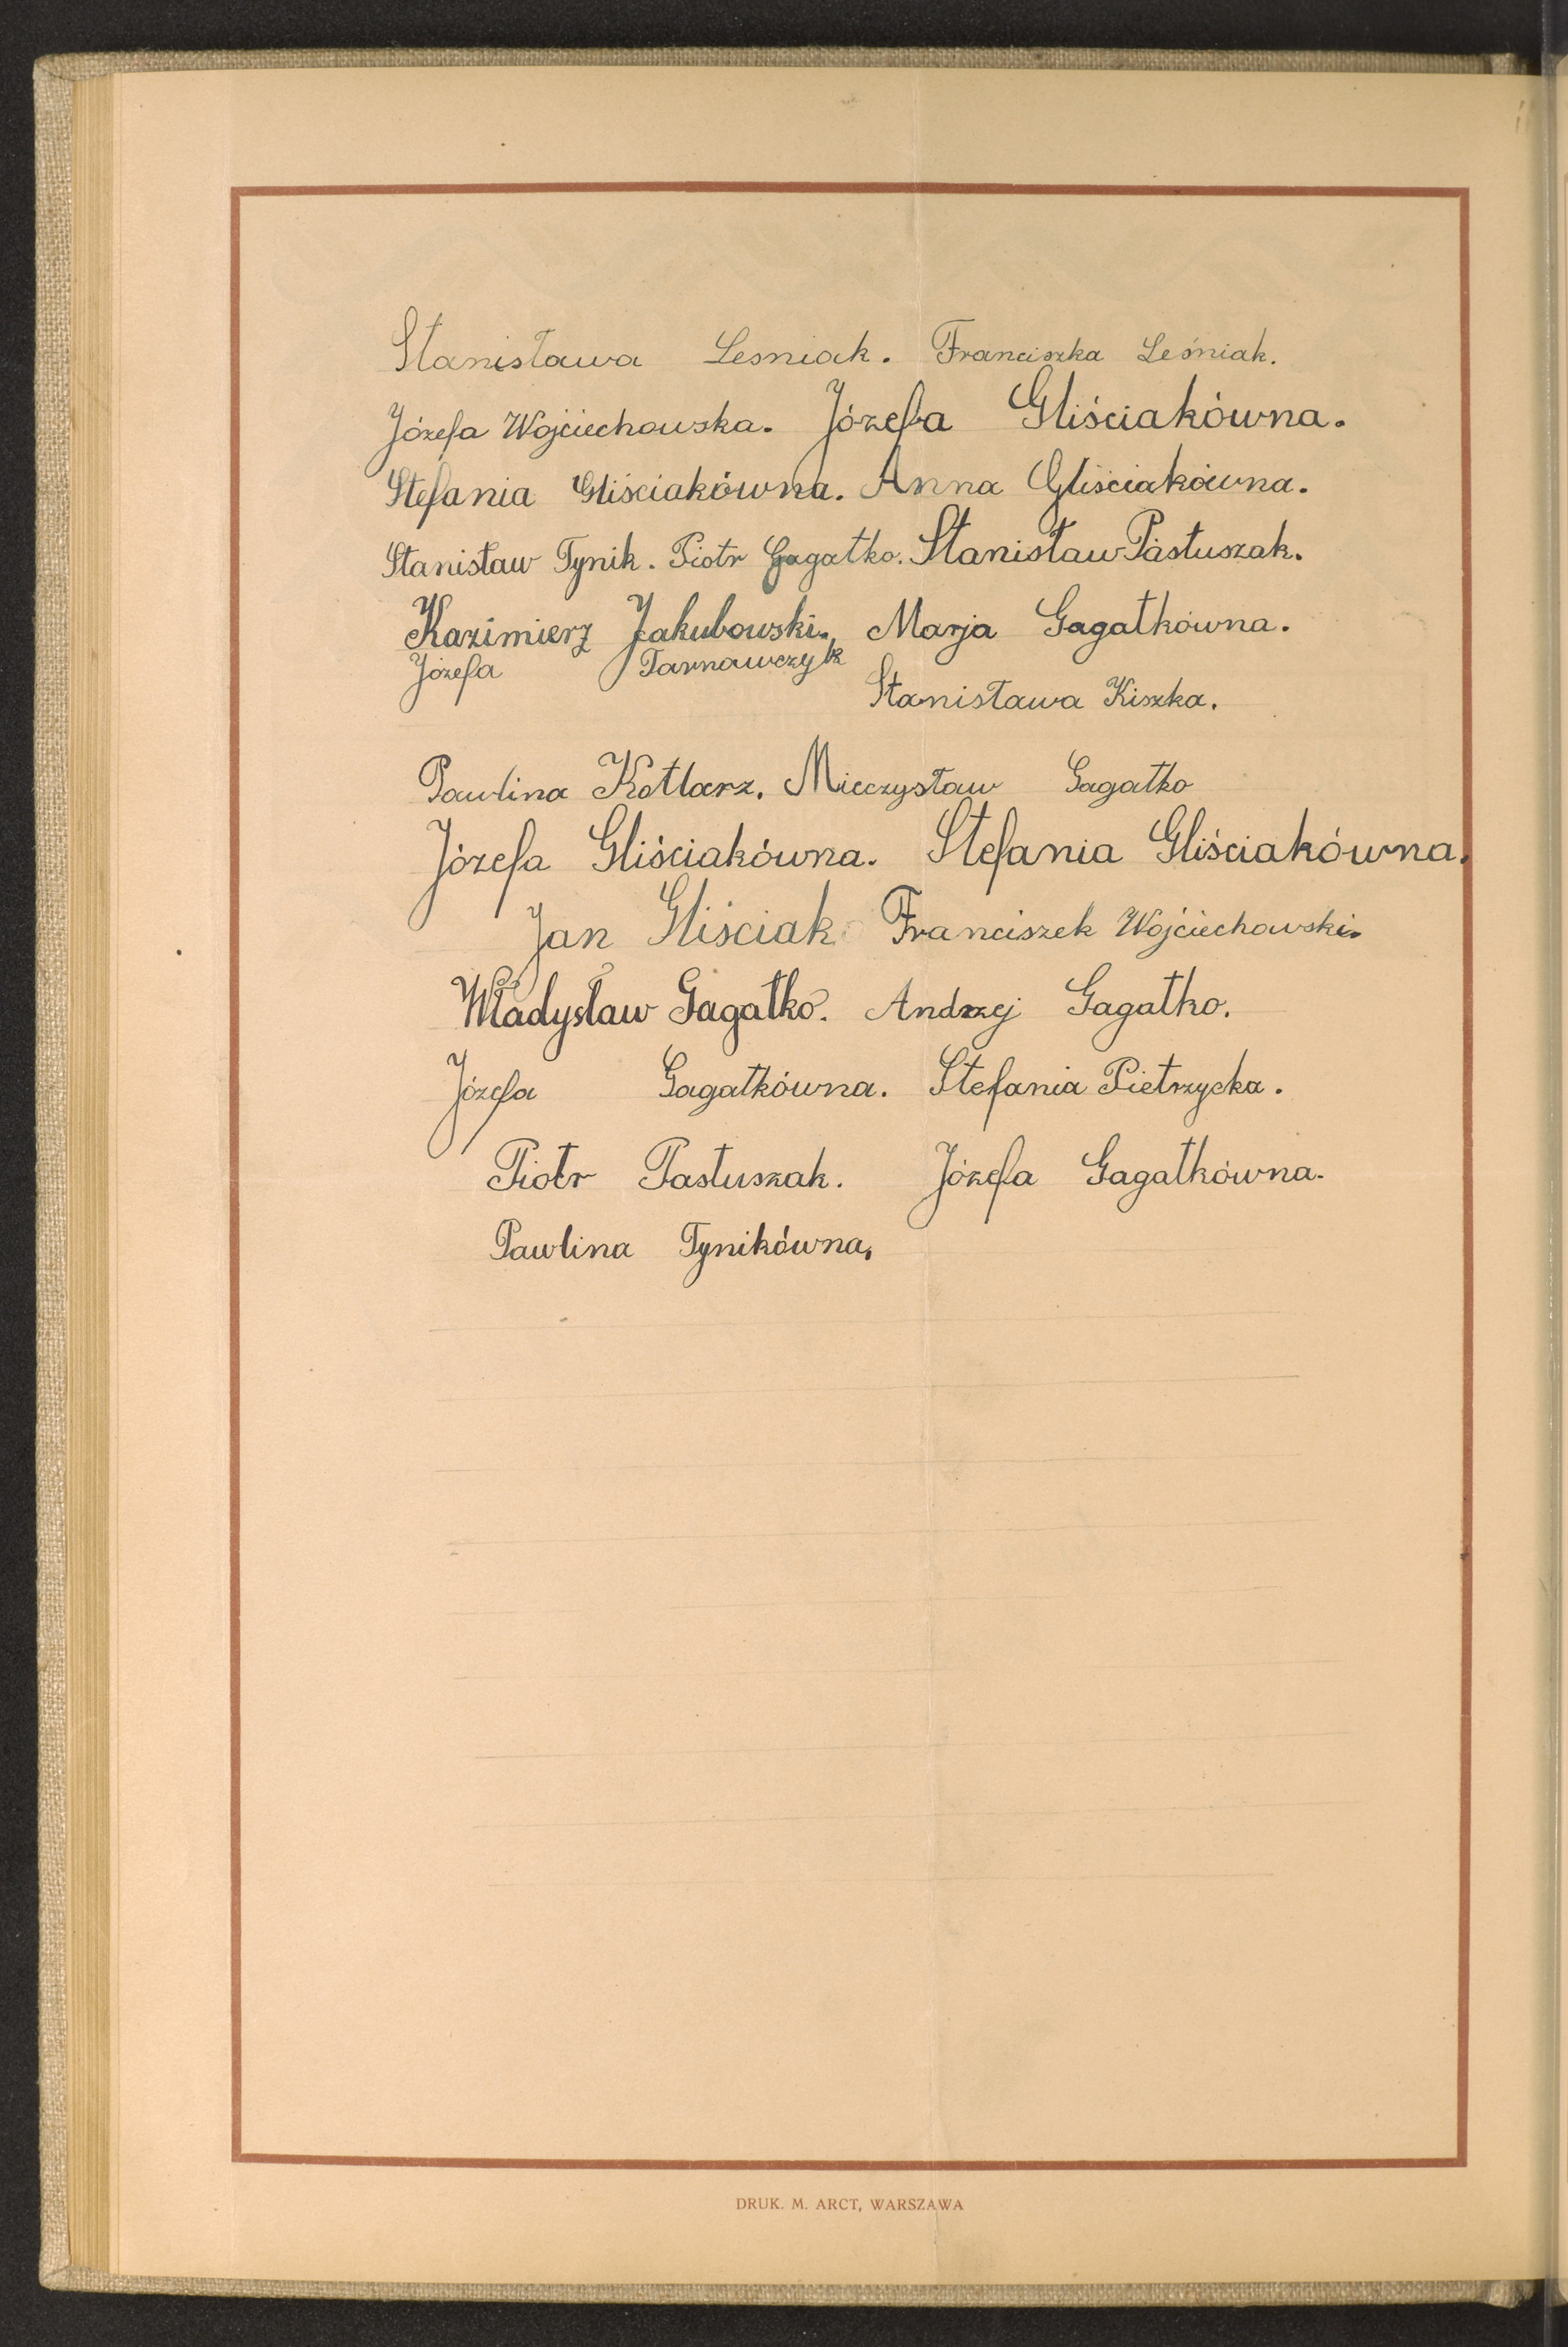 Stanisława Lesniak. Franciszka Leśniak.
Józefa Wojciechowska. Józefa Gliściakówna.
Stefania Gliściakówna. Anna Gliściakówna.
Stanisław Tynik. Piotr Gagatko. Stanisław Pastuszak.
Kazimierz Jakubowski. Marja Gagatkówna.
Józefa Tarnawczyk
Stanisława Kiszka.
Pawlina Kotlarz. Mieczysław Gagatko
Józefa Gliściakówna. Stefania Gliściakówna.
Jan Gliściak Franciszek Wojciechowski.
Władysław Gagatko. Andrzej Gagatko.
Józefa Gagatkówna. Stefania Pietrzycka.
Piotr Pastuszak. Józefa Gagatkówna.
Pawlina Tynikówna.
DRUK. M. ARCT, WARSZAWA